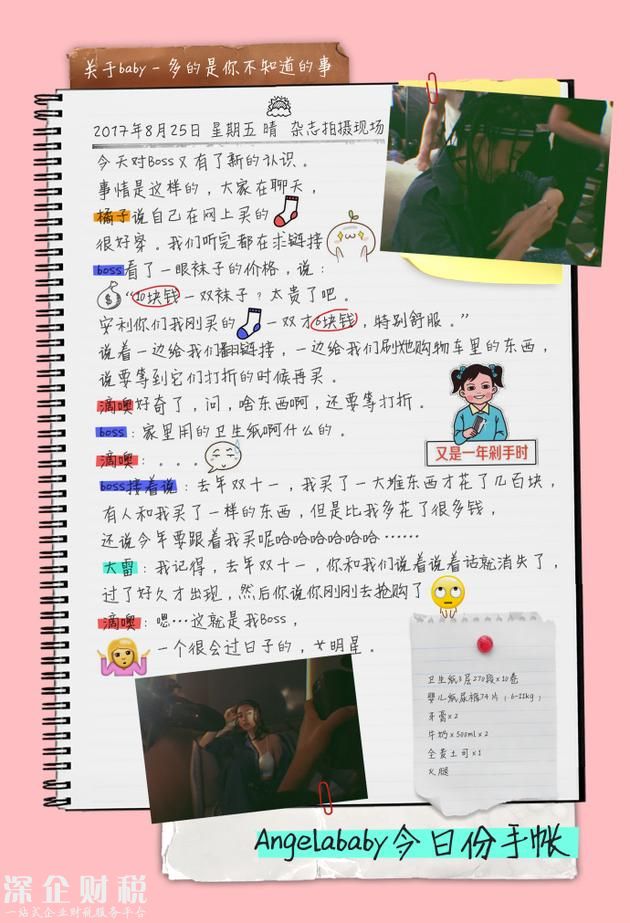 关于baby－多的是你不知道的事
2017年8月25日 星期五 晴 杂志拍摄现场
今天对Boss又有了新的认识。
事情是这样的，大家在聊天，
橘子说自己在网上买的
很好穿。我们听完都在求链接
boss看了一眼袜子的价格，说：
“10块钱一双袜子？太贵了吧。
安利你们我刚买的 一双才6块钱，特别舒服。”
说着一边给我们翻链接，一边给我们刷她购物车里的东西，
说要等到它们打折的时候再买。
滴噢好奇了，问，啥东西啊，还要等打折。
boss：家里用的卫生纸啊什么的。
又是一年剁手时
滴噢：。。。
boss接着说：去年双十一，我买了一大堆东西才花了几百块，
有人和我买了一样的东西，但是比我多花了很多钱，
还说今年要跟着我买呢哈哈哈哈哈哈哈……
大雷：我记得，去年双十一，你和我们说着说着话就消失了，
过了好久才出现，然后你说你刚刚去抢购了
滴噢：嗯…这就是我Boss，
一个很会过日子的，女明星。
卫生纸3层270段x10卷
婴儿纸尿裤74片（6-11kg）
牙膏x2
牛奶x500mlx2
全麦土司x1
火腿
Angelababy今日份手帐
深企财税
一站式企业财税服务平台